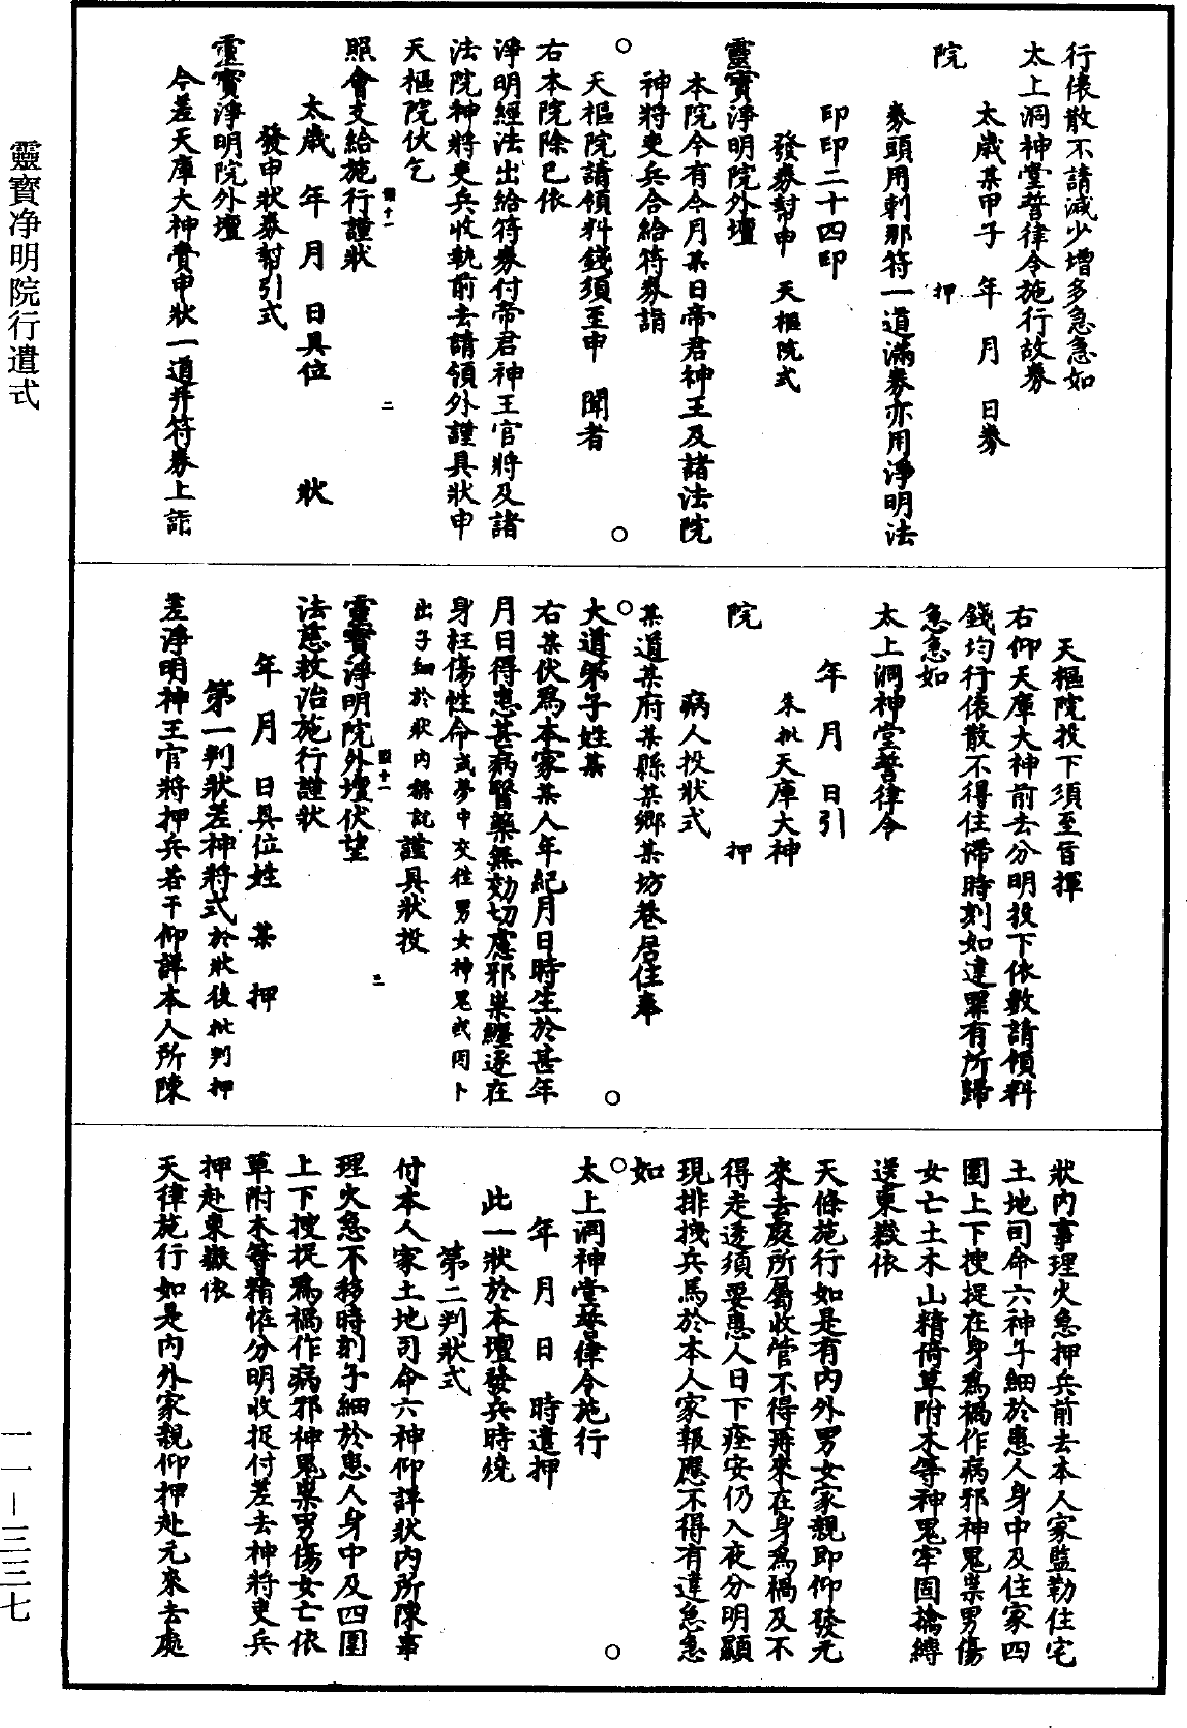 行俵散不請減少增多急急如
太上洞神堂誓律令施行故券
太歲某甲子　年　月　日券
院　　　押
券頭用刺那符一道滿券亦用淨明法
印印二十四印
發券對申　天樞院式
靈寶淨明院外壇
本院今有今月某日帝君神王及諸法院
神將吏兵合給符券詣
天樞院請領料錢須至申　聞者
右本院除已依
淨明經法出給符券付帝君神王官將及諸
法院神將吏兵收執前去請領外謹具狀申
天樞院伏乞
照會支給施行謹狀
太歲　年　月　日具位　　狀
發申狀券對引式
靈寶淨明院外壇
今差天庫大神賫申狀一道幷符券上詣
天樞院投下須至旨揮
右仰天庫大神前去分明投下依數請領料
錢均行俵散不得住滯時刻如違罪有所歸
急急如
太上洞神堂誓律令
年　月　日引
朱批天庫大神
院　　　押
病人投狀式
某道某府某縣某鄉某坊巷居住奉
大道弟子姓某
右某伏爲本家某人年紀月日時生於甚年
月日得患甚病醫藥無効切慮邪祟纏逐在
身枉傷性命或夢中交往男女神鬼或因卜
出子細於狀內稱說謹具狀投
靈寶淨明院外壇伏望
法慈救治施行謹狀
年　月　日具位姓　某　押
第一判狀差神將式於狀後批判押
差淨明神王官將押兵若干仰詳本人所陳
狀內事理火急押兵前去本人家監勒住宅
土地司命六神子細於患人身中及住家四
圍上下搜捉在身爲禍作病邪神鬼祟男傷
女亡土木山精倚草附木等神鬼牢固擒縛
送東嶽依
天條施行如是有內外男女家親即仰發元
來去處所屬收管不得再來在身爲禍及不
得走透須要患人日下痊安仍入夜分明顯
現排拽兵馬於本人家報應不得有違急急
如
太上洞神堂誓律令施行
年　月　日　時遣押
此一狀於本壇發兵時燒
第二判狀式
付本人家土地司命六神仰詳狀內所陳事
理火急不移時刻子細於患人身中及四圍
上下搜捉爲禍作病邪神鬼祟男傷女亡依
草附木等精恠分明收捉付差去神將吏兵
押赴東嶽依
天律施行如是內外家親仰押赴元來去處
靈寶净明院行遣式
一一—三三七